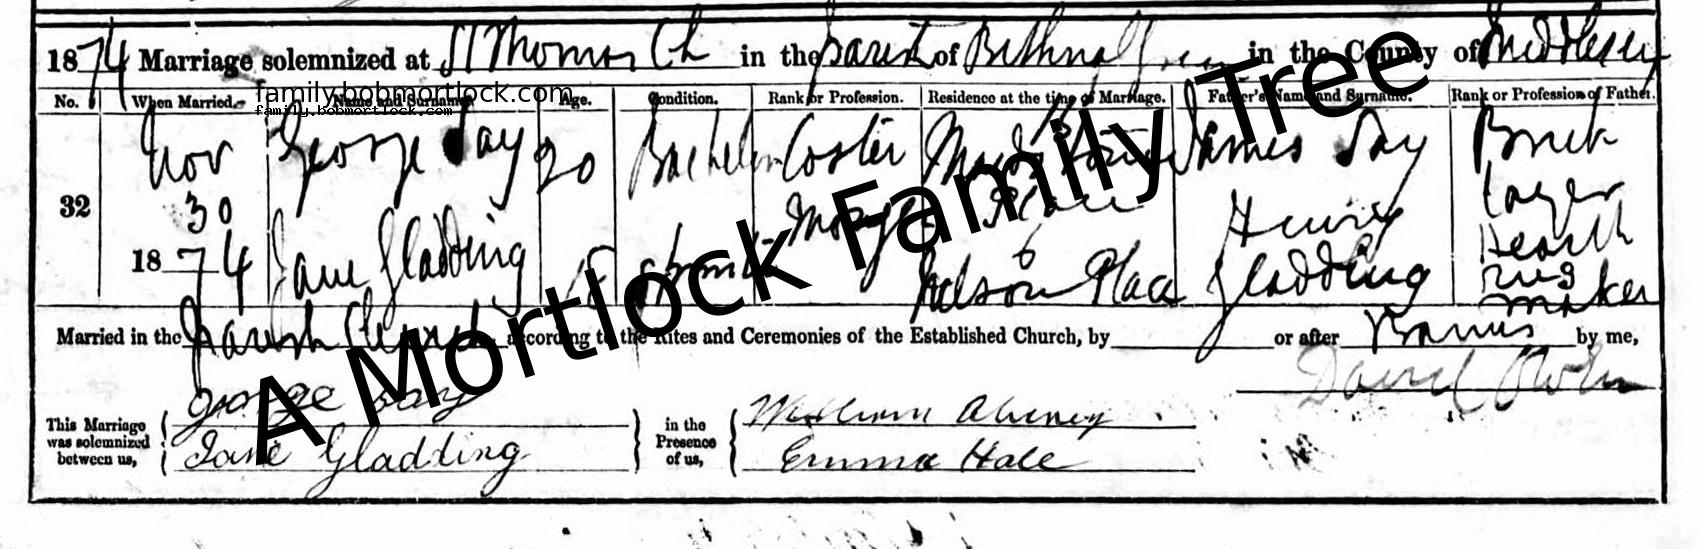 1874 Marriage solemnized at St Thomas Ch in the parish of Bethnal Green in the County of Middlesex
family.bobmortlock.com
family.bobmortlock.com
No. When Married. Name and Surname. Age. Condition. Rank or Profession. Residence at the time of Marriage. Father's Name and Surname. Rank or Profession of Father.
32 Nov 30 1874 George Say 20 Bachelor Coster Place James Say Brick layer
Jane Gladding Spinster 6 Nelson Place Henry Gladding Hearth rug maker
Married in the Parish Church according to the Rites and Ceremonies of the Established Church, by or after Banns by me,
This Marriage was solemnized between us, George Say Jane Gladding in the Presence of us, William Emma Hale
A Mortlock Family Tree